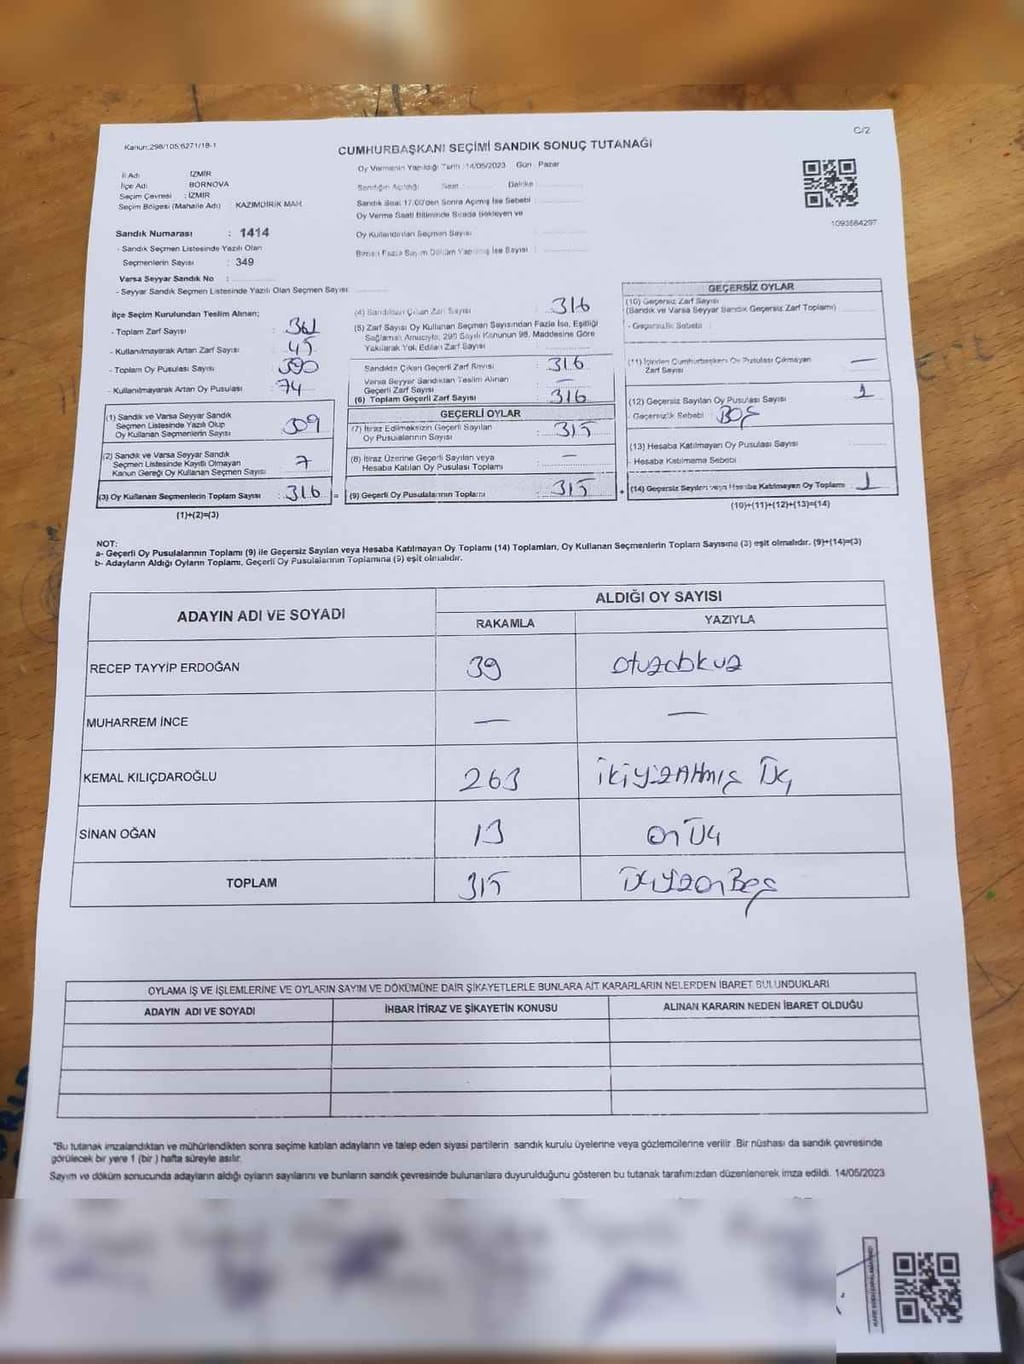 C/2
Kanun:298/105,6271/18-1
CUMHURBAŞKANI SEÇİMİ SANDIK SONUÇ TUTANAĞI
Oy Vermenin Yapıldığı Tarih :14/05/2023 Gün : Pazar
İl Adı : İZMİR
İlçe Adı : BORNOVA
Seçim Çevresi : İZMİR
Seçim Bölgesi (Mahalle Adı) : KAZIMDİRİK MAH.
Sandığın Açıldığı Saat : Dakika :
Sandık Saat 17.00'den Sonra Açılmış İse Sebebi :
Oy Verme Saati Bitiminde Sırada Bekleyen ve
Oy Kullandırılan Seçmen Sayısı :
Birden Fazla Sayım Döküm Yapılmış İse Sayısı :
1093584297
Sandık Numarası : 1414
- Sandık Seçmen Listesinde Yazılı Olan
Seçmenlerin Sayısı : 349
Varsa Seyyar Sandık No :
- Seyyar Sandık Seçmen Listesinde Yazılı Olan Seçmen Sayısı:
İlçe Seçim Kurulundan Teslim Alınan;
- Toplam Zarf Sayısı : 361
- Kullanılmayarak Artan Zarf Sayısı : 45
- Toplam Oy Pusulası Sayısı : 390
- Kullanılmayarak Artan Oy Pusulası : 74
(1) Sandık ve Varsa Seyyar Sandık
Seçmen Listesinde Yazılı Olup
Oy Kullanan Seçmenlerin Sayısı : 309
(2) Sandık ve Varsa Seyyar Sandık
Seçmen Listesinde Kayıtlı Olmayan
Kanun Gereği Oy Kullanan Seçmen Sayısı : 7
(3) Oy Kullanan Seçmenlerin Toplam Sayısı : 316 =
(1)+(2)=(3)
(4) Sandıktan Çıkan Zarf Sayısı : 316
(5) Zarf Sayısı Oy Kullanan Seçmen Sayısından Fazla İse, Eşitliği
Sağlamak Amacıyla, 298 Sayılı Kanunun 98. Maddesine Göre
Yakılarak Yok Edilen Zarf Sayısı :
Sandıkta Çıkan Geçerli Zarf Sayısı : 316
Varsa Seyyar Sandıktan Teslim Alınan
Geçerli Zarf Sayısı : —
(6) Toplam Geçerli Zarf Sayısı : 316
GEÇERLİ OYLAR
(7) İtiraz Edilmeksizin Geçerli Sayılan
Oy Pusulalarının Sayısı : 315
(8) İtiraz Üzerine Geçerli Sayılan veya
Hesaba Katılan Oy Pusulası Toplamı : —
(9) Geçerli Oy Pusulalarının Toplamı : 315 +
GEÇERSİZ OYLAR
(10) Geçersiz Zarf Sayısı
(Sandık ve Varsa Seyyar Sandık Geçersiz Zarf Toplamı) :
- Geçersizlik Sebebi :
(11) İçinden Cumhurbaşkanı Oy Pusulası Çıkmayan
Zarf Sayısı : —
(12) Geçersiz Sayılan Oy Pusulası Sayısı : 1
- Geçersizlik Sebebi : BOŞ
(13) Hesaba Katılmayan Oy Pusulası Sayısı :
- Hesaba Katılmama Sebebi :
(14) Geçersiz Sayılan veya Hesaba Katılmayan Oy Toplamı : 1
(10)+(11)+(12)+(13)=(14)
NOT:
a- Geçerli Oy Pusulalarının Toplamı (9) ile Geçersiz Sayılan veya Hesaba Katılmayan Oy Toplamı (14) Toplamları, Oy Kullanan Seçmenlerin Toplam Sayısına (3) eşit olmalıdır. (9)+(14)=(3)
b- Adayların Aldığı Oyların Toplamı, Geçerli Oy Pusulalarının Toplamına (9) eşit olmalıdır.
ADAYIN ADI VE SOYADI
ALDIĞI OY SAYISI
RAKAMLA YAZIYLA
RECEP TAYYİP ERDOĞAN 39 otuzdokuz
MUHARREM İNCE — —
KEMAL KILIÇDAROĞLU 263 ikiyüzAltmış Üç
SİNAN OĞAN 13 on Üç
TOPLAM 315
OYLAMA İŞ VE İŞLEMLERİNE VE OYLARIN SAYIM VE DÖKÜMÜNE DAİR ŞİKAYETLERLE BUNLARA AİT KARARLARIN NELERDEN İBARET BULUNDUKLARI
ADAYIN ADI VE SOYADI İHBAR İTİRAZ VE ŞİKAYETİN KONUSU ALINAN KARARIN NEDEN İBARET OLDUĞU
"Bu tutanak imzalandıktan ve mühürlendikten sonra seçime katılan adayların ve talep eden siyasi partilerin sandık kurulu üyelerine veya gözlemcilerine verilir. Bir nüshası da sandık çevresinde
görülecek bir yere 1 (bir ) hafta süreyle asılır.
Sayım ve döküm sonucunda adayların aldığı oyların sayılarını ve bunların sandık çevresinde bulunanlara duyurulduğunu gösteren bu tutanak tarafımızdan düzenlenerek imza edildi. 14/05/2023